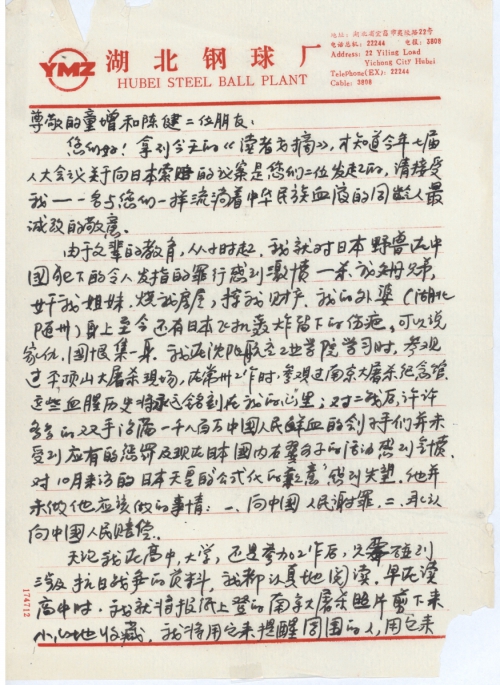 YMZ
湖北钢球厂
HUBEI STEEL BALL PLANT
地址：湖北省宜昌市夷陵路22号
电话总机：22244 电报：3808
Address: 22 Yiling Load
Yichong City Hubei
TelePhone(EX): 22244
Cable: 3808
尊敬的童增和陈健二位朋友：
您们好！拿到今天的《读者文摘》，才知道今年七届
人大会议关于向日本索赔的议案是您们二位发起的，请接受
我——一名与您们一样流淌着中华民族血液的同龄人最
诚挚的敬意。
由于父辈的教育，从小时起，我就对日本野兽在中
国犯下的令人发指的罪行感到激愤——杀我父母兄弟，
奸我姐妹，烧我房屋，掠我财产，我的外婆（湖北
随州）身上至今还有日本飞机轰炸留下的伤疤。可以说
家仇，国恨集一身。我在沈阳航空工业学院学习时，参观
过平顶山大屠杀现场，在常州工作时，参观过南京大屠杀纪念馆，
这些血腥历史将永远铭刻在我的心里；对二战后许许
多多的双手沾满一千八百万中国人民鲜血的刽子手们并未
受到应有的惩罚及现在日本国内右翼分子的活动感到愤，
对10月来访的日本天皇的“公式化的歉意”感到失望，他并
未做他应该做的事情：一、向中国人民谢罪，二、承认
向中国人民赔偿。
无论我在高中，大学，还是参加工作后，只需碰到
涉及抗日战争的资料，我都认真地阅读。早在读
高中时，我就将报纸上登的南京大屠杀照片剪下来
小心地收藏，我将用它来提醒周围的人，用它来
174712